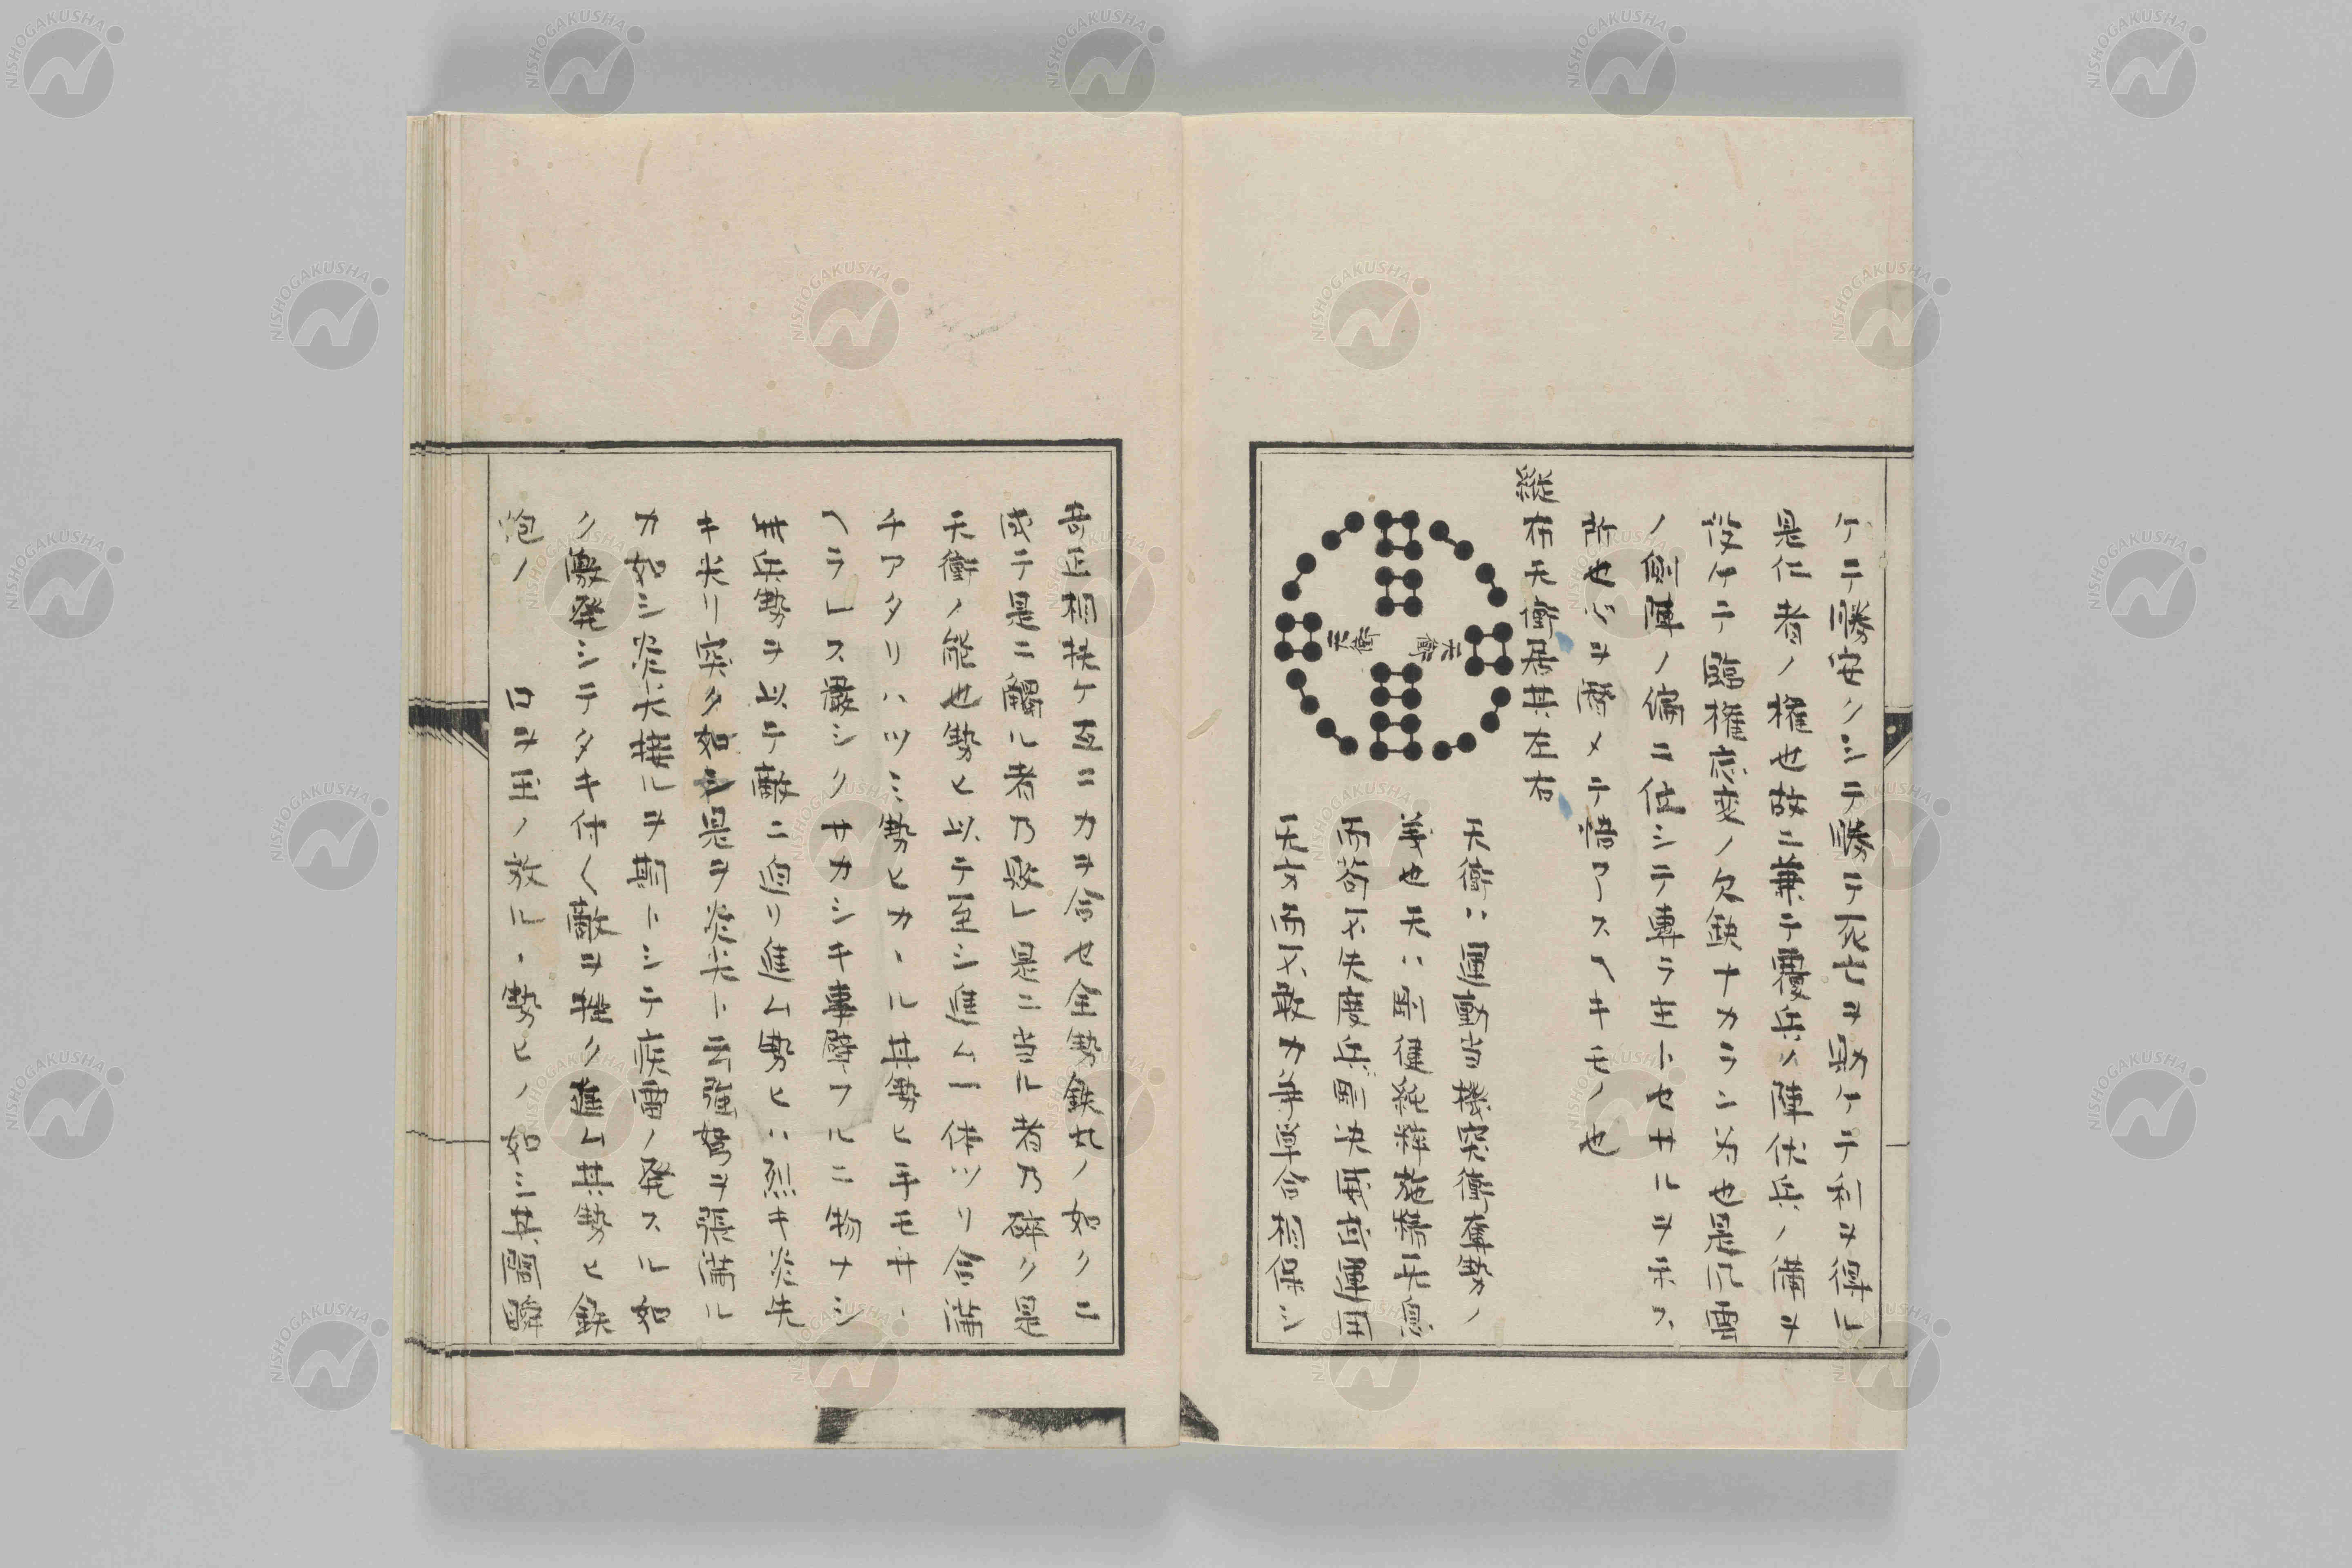 ケテ勝安クシテ勝テ死セヲ助ケテ利ヲ得ル
是仁者ノ権也故ニ兼テ覆兵ノ陣伏兵ノ備ヲ
役ケテ臨権応変ノ欠鉄ナカラン為也是化雷
ノ側陣ノ偏ニ位シテ専ラ主トセサルヲ示ス
所也心ヲ潜メテ悟アスヘキモノ也
縦布天衝居其左右
天衝ハ運動当機突衝奪勢ノ
義也天ハ剛健純粋施
而不失度兵断決
天方而不
天衝
天衝
奇正相扶ケ互ニ力ヲ合セ全勢鉄丸ノ如クニ
成テ是ニ觸ル者乃毀レ是ニ当ル者乃砕ク是
天衝ノ能也勢ヒ以テ至シ進ム一体ツリ合満
チアタリハツミ勢ヒカヽル其勢ヒ手モサヽ
ヘラレス厳シクサカシキ事障フルニ物ナシ
其兵勢ヲ以テ敵ニ迫リ進ム勢ヒハ烈キ炎先
キ尖リ突ク如シ是ヲ炎尖ト云強弩ヲ張満ル
カ如シ炎尖接ルヲ期トシテ疾雷ノ発スル如
ク激発シテタキ付ク敵ヲ挫ク進ム其勢ヒ鉄
炮ノ 口ヲ玉ノ放ルヽ勢ヒノ如シ其闘